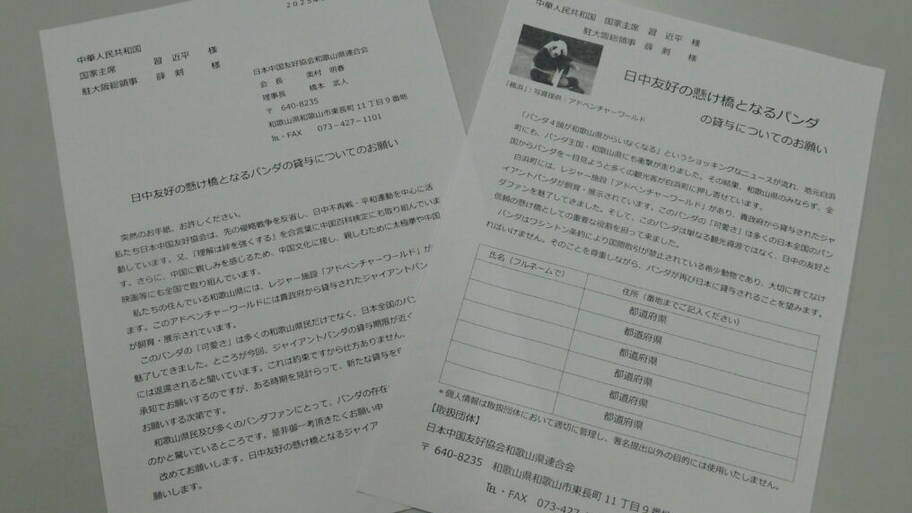 2025年
中華人民共和国
国家主席 習 近平 様
駐大阪総領事 薛 剣 様
日本中国友好協会和歌山県連合会
会 長 奥村 明春
理事長 橋本 武人
〒 640-8235
和歌山県和歌山市東長町11丁目9番地
℡・FAX 073-427-1101
日中友好の懸け橋となるパンダの貸与についてのお願い
突然のお手紙、お許しください。
私たち日本中国友好協会は、先の侵略戦争を反省し、日中不再戦・平和運動を中心に活
動しています。又、「理解は絆を強くする」を合言葉に中国百科検定にも取り組んでいま
す。さらに、中国に親しみを感じるため、中国文化に接し、親しむために太極拳や中国
映画等にも全国で取り組んでいます。
私たちの住んでいる和歌山県には、レジャー施設「アドベンチャーワールド」が
ます。このアドベンチャーワールドには貴政府から貸与されたジャイアントパン
が飼育・展示されています。
このパンダの「可愛さ」は多くの和歌山県民だけでなく、日本全国のパン
魅了してきました。ところが今回、ジャイアントパンダの貸与期限が近く
には返還されると聞いています。これは約束ですから仕方ありません。
承知でお願いするのですが、ある時期を見計らって、新たな貸与を
お願いする次第です。
和歌山県民及び多くのパンダファンにとって、パンダの存在
のかと驚いているところです。是非御一考頂きたくお願い申
改めてお願いします。日中友好の懸け橋となるジャイア
願いします。
中華人民共和国 国家主席 習 近平 様
駐大阪総領事 薛 剣 様
日中友好の懸け橋となるパンダ
の貸与についてのお願い
「横浜」:写真提供 アドベンチャーワールド
「パンダ4頭が和歌山県からいなくなる」というショッキングなニュースが流れ、地元白浜
町にも、パンダ王国・和歌山県にも衝撃が走りました。その結果、和歌山県のみならず、全
国からパンダを一目見ようと多くの観光客が白浜町に押し寄せています。
白浜町には、レジャー施設「アドベンチャーワールド」があり、貴政府から貸与されたジャ
イアントパンダが飼育・展示されています。このパンダの「可愛さ」は多くの日本全国のパン
ダファンを魅了してきました。そして、このパンダは単なる観光資源ではなく、日中の友好と
信頼の懸け橋としての重要な役割を担って来ました。
パンダはワシントン条約により国際取引が禁止されている希少動物であり、大切に育てなけ
ればいけません。そのことを尊重しながら、パンダが再び日本に貸与されることを望みます。
氏名(フルネームで) 住所(番地までご記入ください)
都道府県
都道府県
都道府県
都道府県
都道府県
*個人情報は取扱団体において適切に管理し、署名提出以外の目的には使用いたしません。
【取扱団体】
日本中国友好協会和歌山県連合会
〒 640-8235 和歌山県和歌山市東長町11丁目9番
℡・FAX 073-427